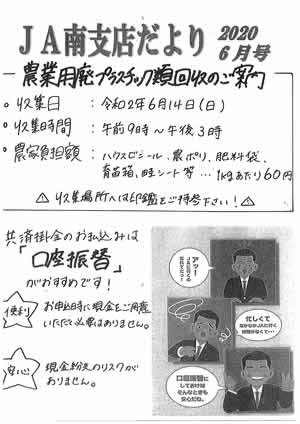 JA南支店だより 2020 6月号
農業用廃プラスチック類回収のご案内
・収集日 : 令和2年6月14日(日)
・収集時間 : 午前9時～午後3時
・農家負担額 : ハウスビニール、農ポリ、肥料袋、
育苗箱、畦シート等…1kgあたり60円
⚠収集場所へは印鑑をご持参下さい!⚠
共済掛金のお払込みは
「口座振替」
がおすすめです!
便利 お申込時に現金をご用意
いただく必要はありません。
安心 現金紛失のリスクが
ありません。
アッ!
忙しくて
なかなかJAに行く
時間がなくて…
口座振替に
しておけば
そんなときも
安心だね。